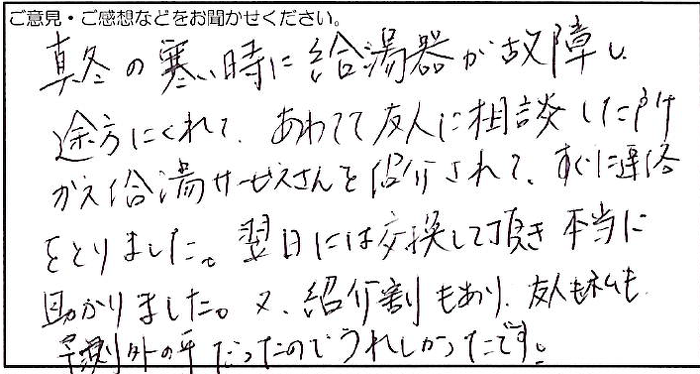 ご意見・ご感想などをお聞かせください。
真冬の寒い時に給湯器が故障し
途方にくれて、あわてて友人に相談した所
がえ給湯サービスさんを紹介されて、すぐに連絡
をとりました。翌日には交換して頂き本当に
助かりました。又、紹介割もあり、友人も私も
予測外の事だったのでうれしかったです。